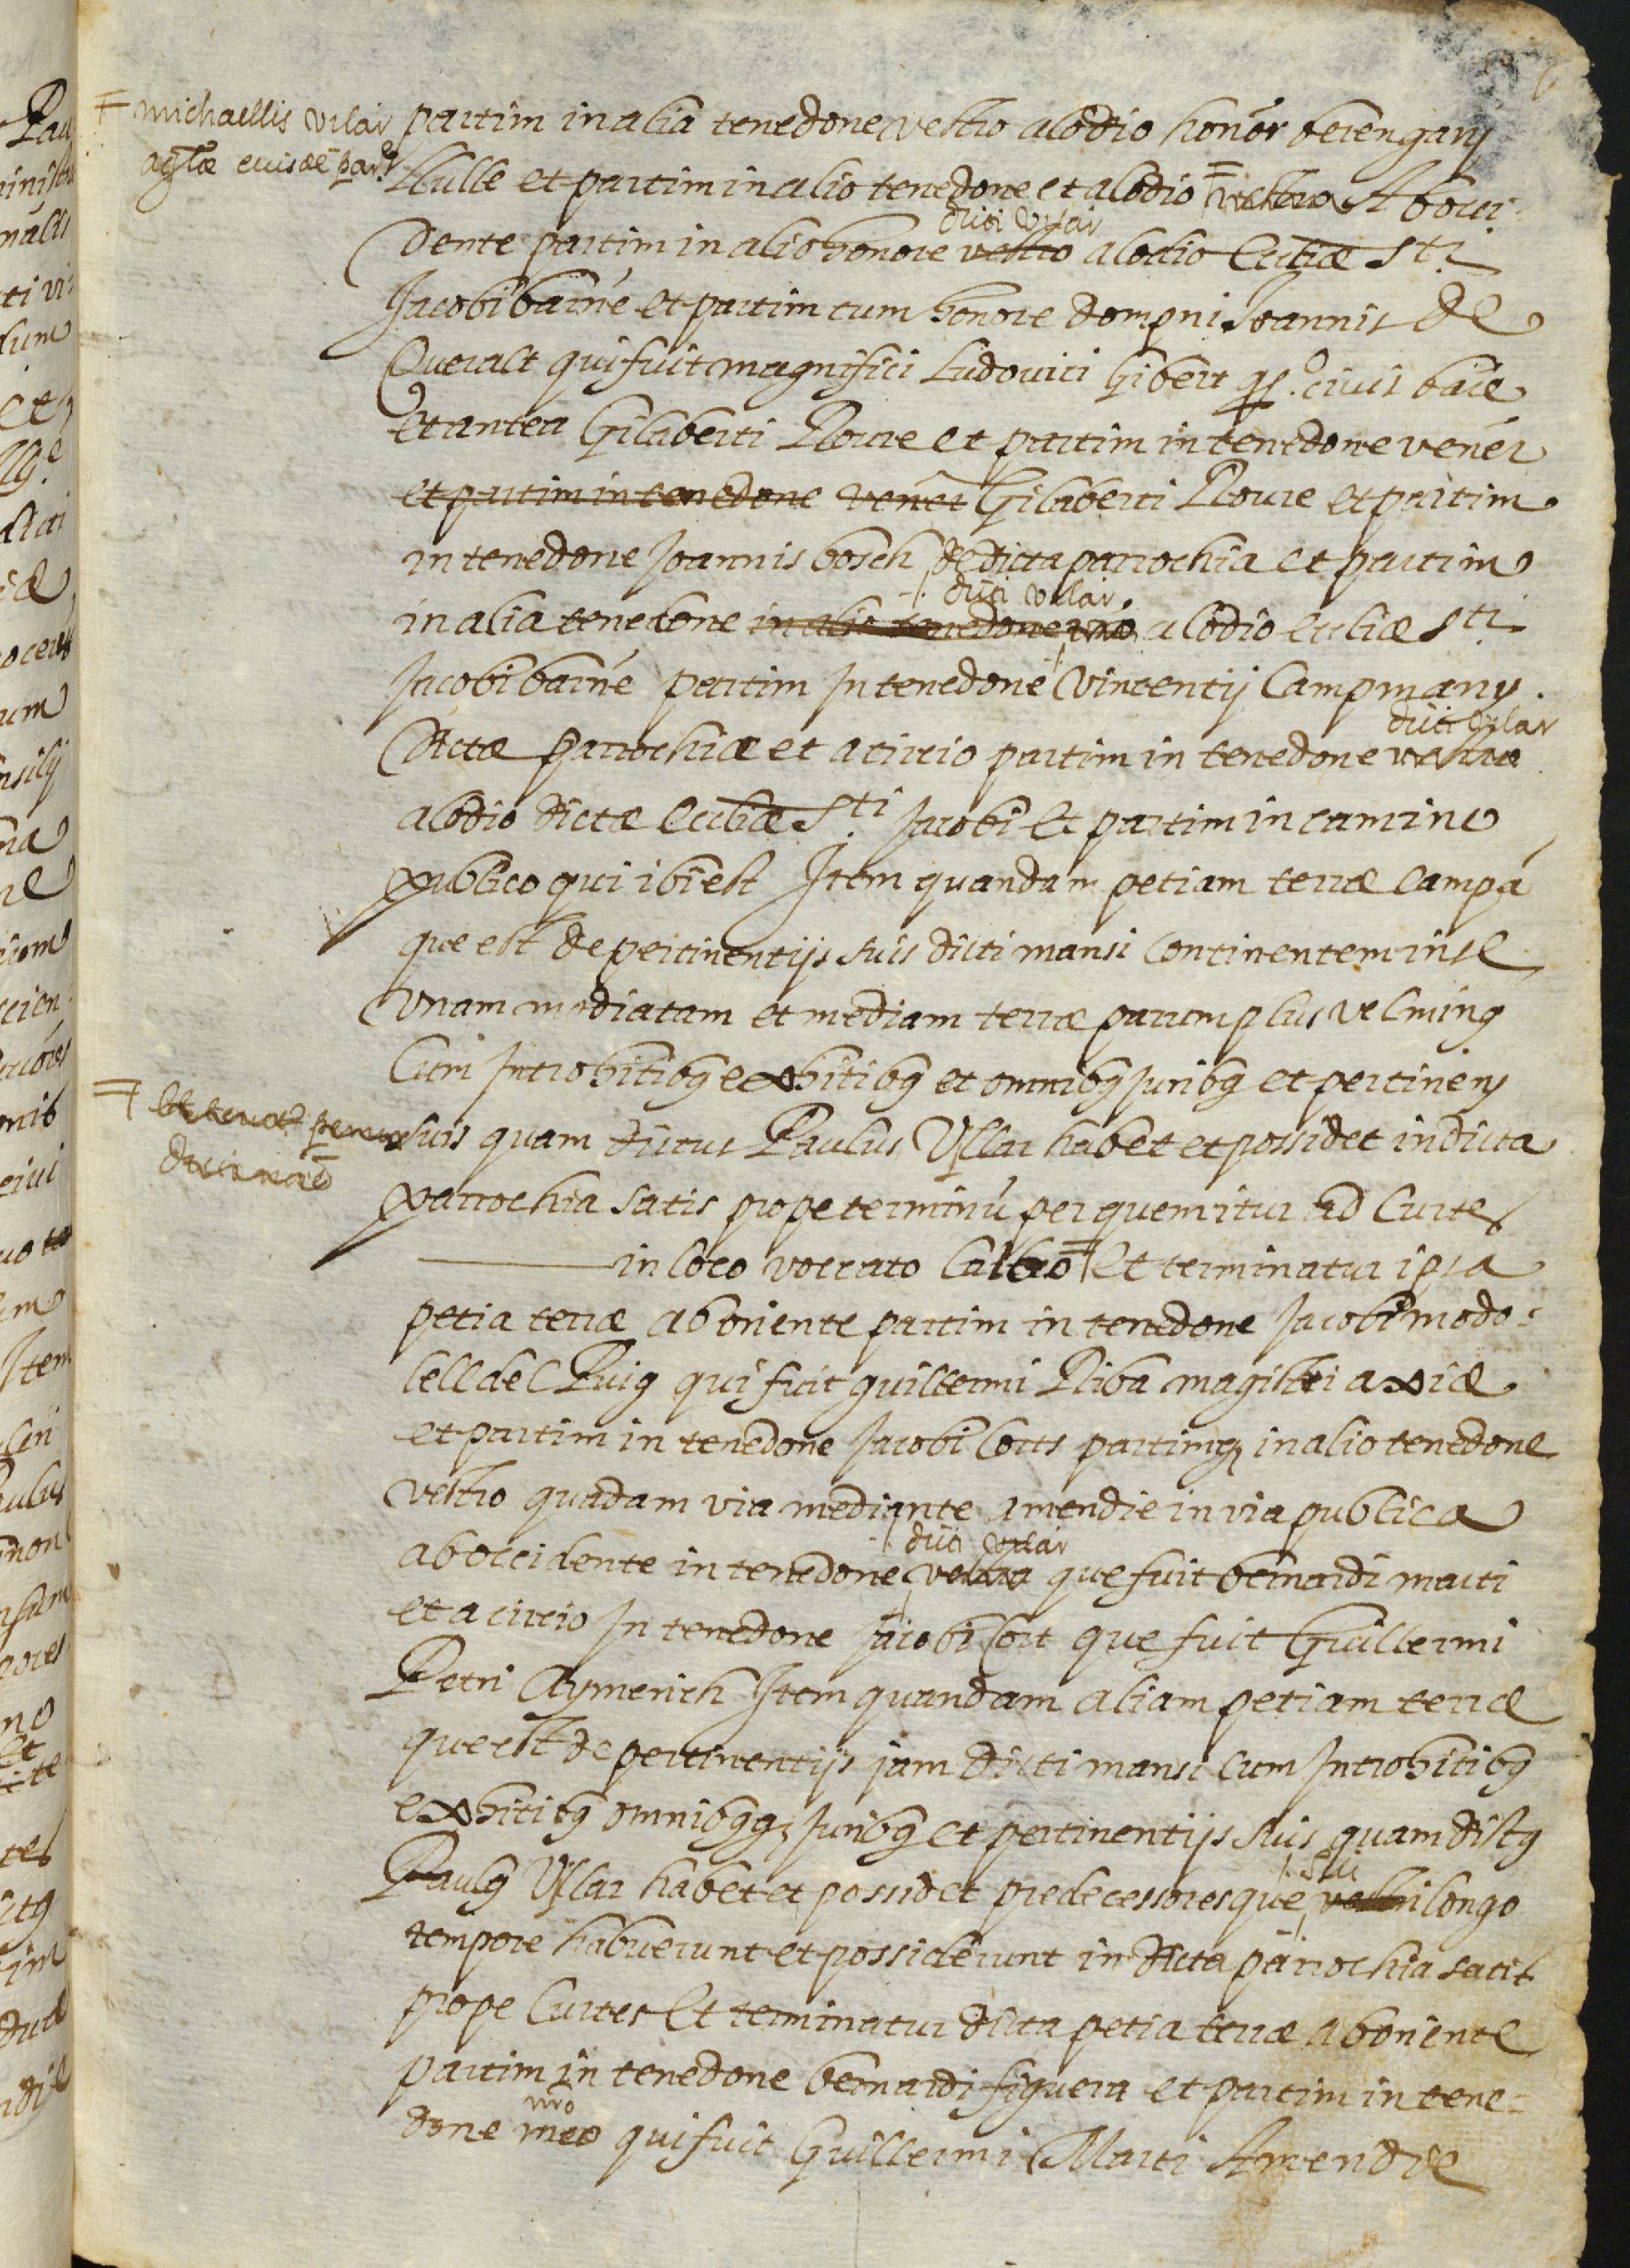 partim in alia tenedone vestro alodio honór berengarij
= michaellis vilar
aglæ eiusdē par.
Llulle et partim in alio tenedone et alodio = vestro A bocci
dicti vilar
dente partim in alio honore vestro alodio Ecclíæ Sti
Jacobi barné et partim cum honore dompni Joannis de
Queralt qui fuit magnifici Ludovici Gibert qº civis barne
et antea Gilaberti Roure et partim in tenedone venér
et partim in tenedone venér Gilaberti Roure et partim
in tenedone Joannis bosch de dicta parrochia et partim
dicti vilar
in alia tenedone in alio tenedone alodio eccliæ Sti
Jacobi barné partim In tenedone Vincentij Campmany
dicti vilar
Dictæ Parrochiæ et a circio partim in tenedone vestra
alodio dictæ Eccliæ Sti Jacobi Et partim in camino
publico qui ibi est Item quandam petiam terræ campá
que est de pertinentijs suis dicti mansi Continentem in se
Vnam modiatam et mediam terræ parrom plus vel minq
Cum Introhitibq exhitibq et omnibq Juribq et pertinens
=
suis quam dictus Paulus Vllar habet et possidet in dicta
parrochia satis prope terminú per quem itur ad Curtes
in loco voccato Castro = Et terminatur ipsa
petia terræ ab oriente partim in tenedone Jacobi modo=
lell del Puig qui fuit guillermi Riba magistri axiæ
et partim in tenedone Jacobi Corts partimq in alio tenedone
vestro quadam via mediante a mendie in via publica
dicti vilar
ab occidente in tenedone vestra que fuit bernardi marti
et a circio In tenedone Jacobi Cort que fuit Guillermi
Petri Aymerich Item quandam aliam petiam terræ
que est de pertinentijs jam dicti mansi Cum Introhitibq
exhitibq omnibqq Juribq et pertinentijs suis quam dictq
sui
Paulq Vllar habet et possidet predecessoresque vestri longo
tempore habuerunt et possiderunt in dicta parrochia satis
prope Curtes Et terminatur dicta petia terræ ab oriente
partim in tenedone bernardi figuera et partim in tene=
nro
done meo qui fuit Guillermi Marti Amendie